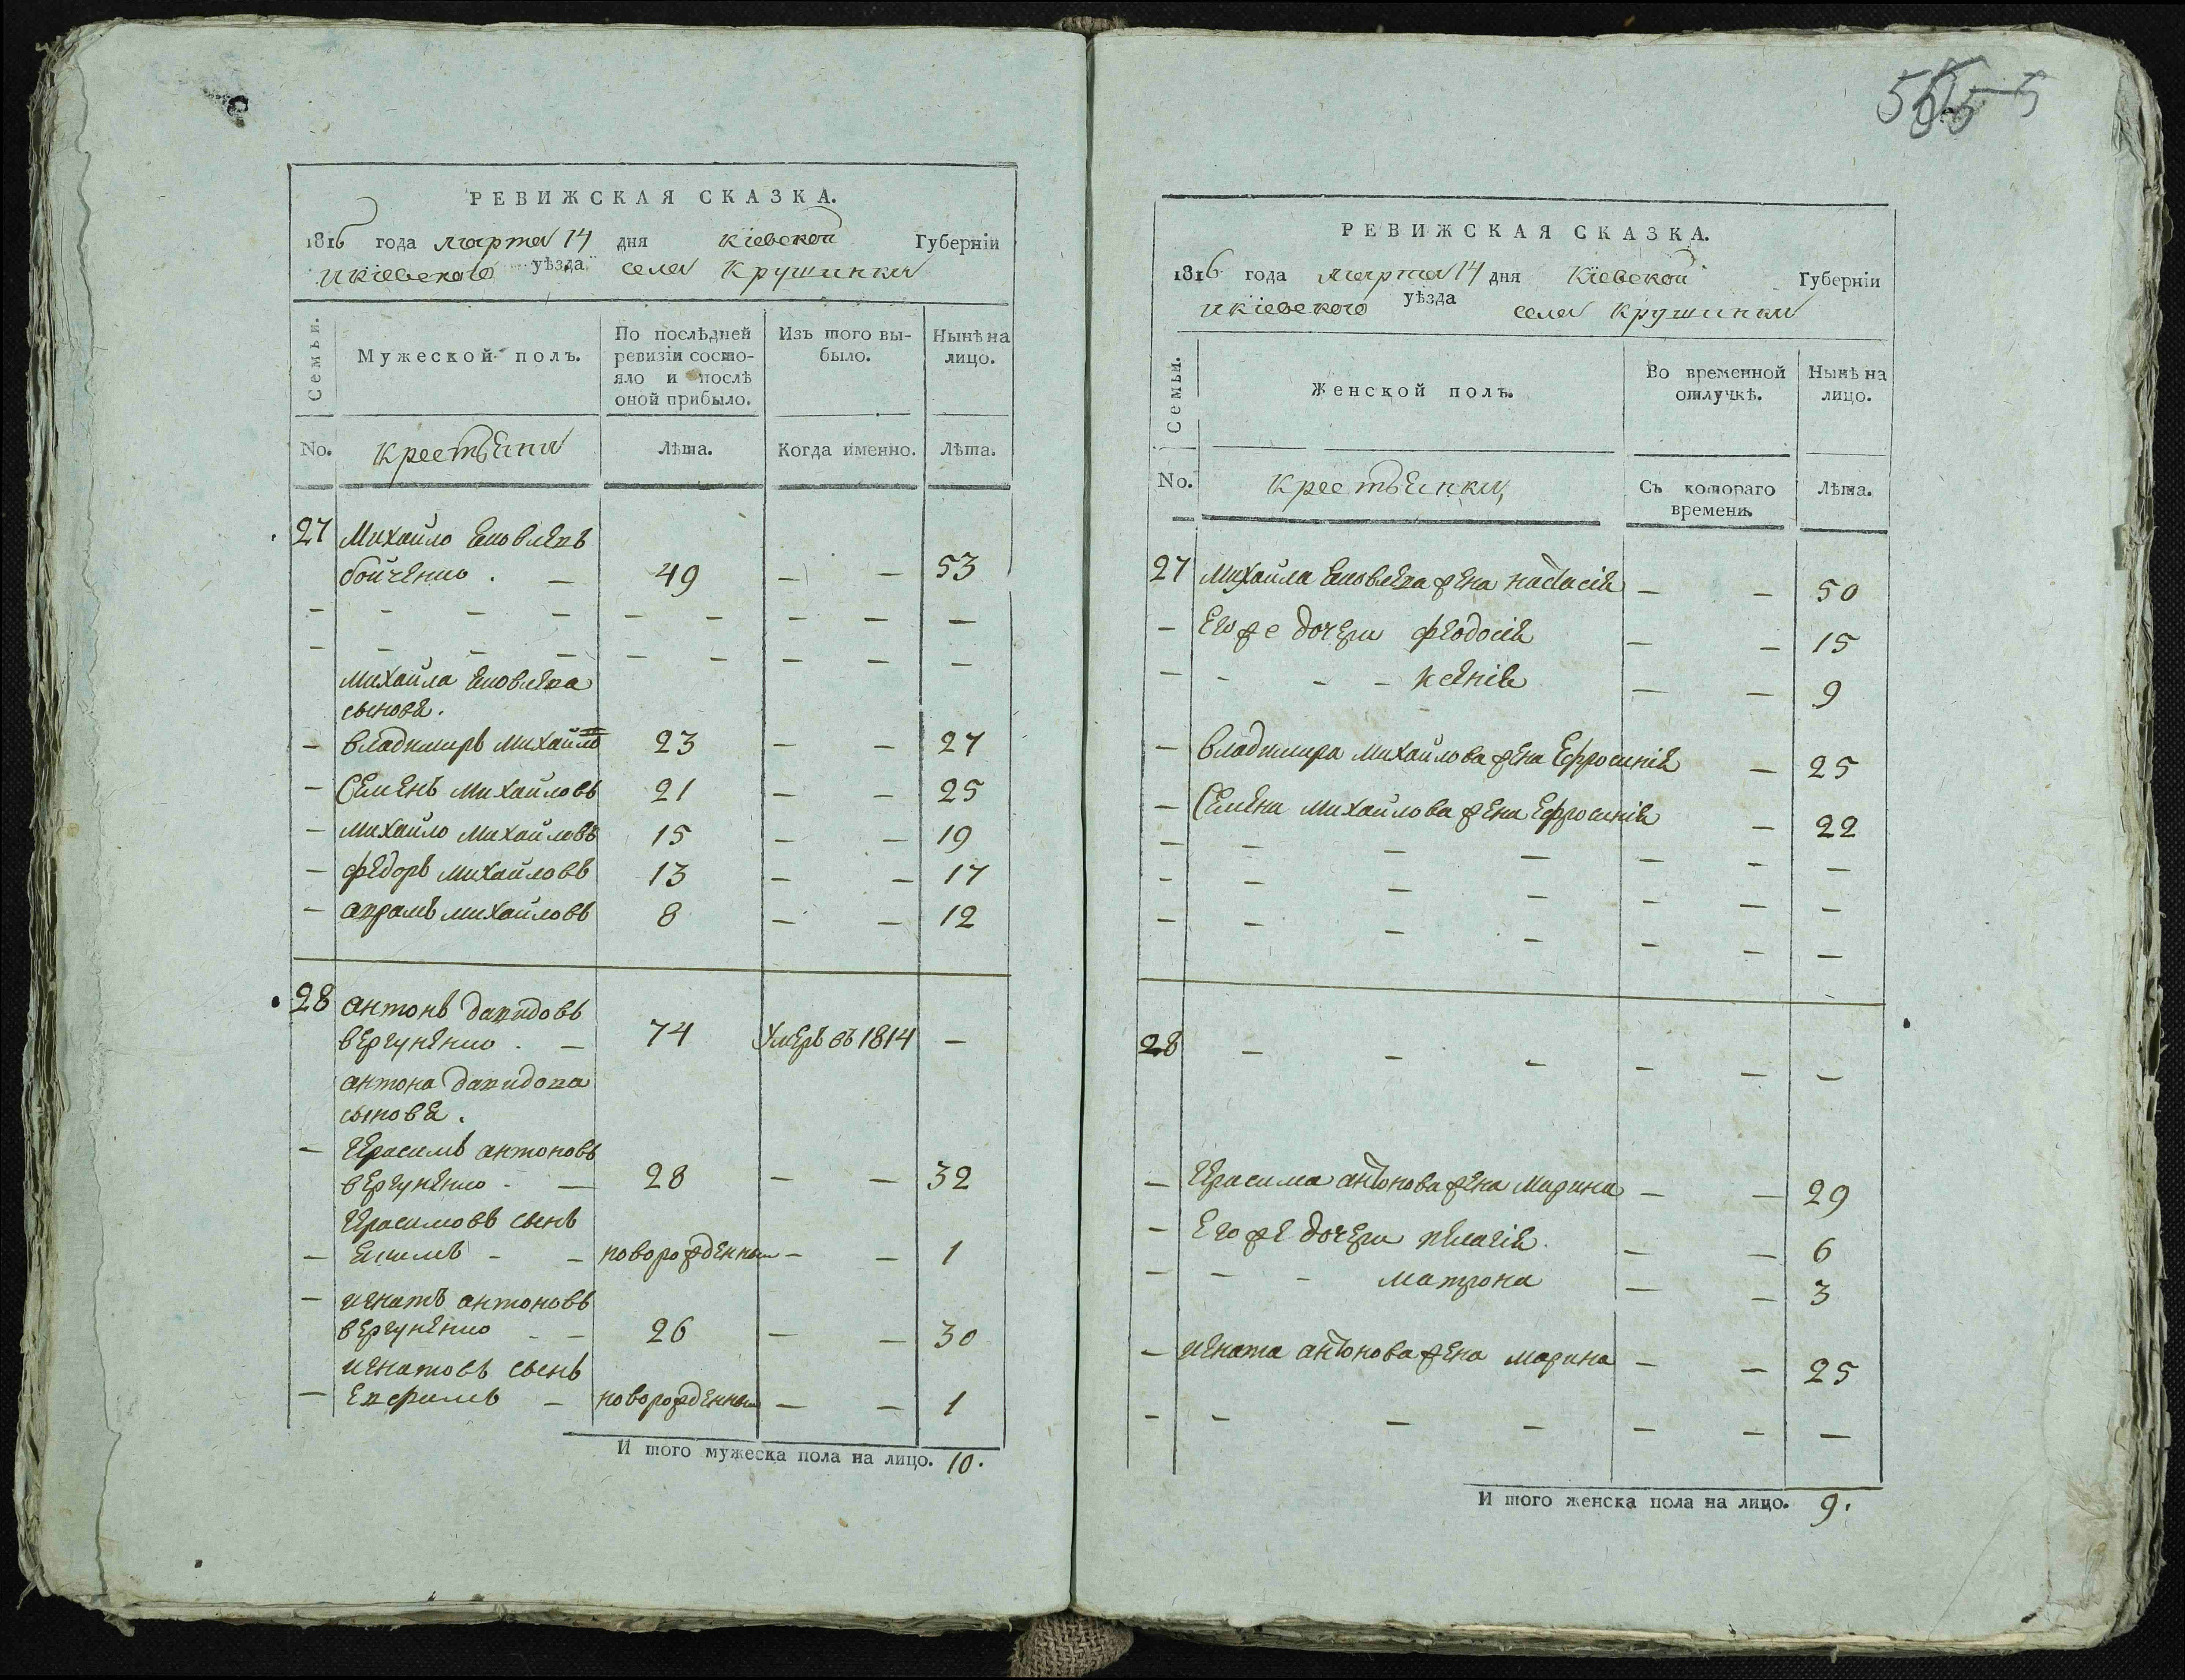 РЕВИЖСКАЯ СКАЗКА.
1816 года марта 14 дня Кіевской Губерніи
Икіевского уѣзда села Крушинки
Семьи.
Мужеской полъ.
По послѣдней ревизіи состояло и послѣ оной прибыло.
Изъ того выбыло.
Нынѣ на лицо.
No. крестьяня Лѣта. Когда именно. Лѣта.
27 Михайло яковлевъ
бойченко . — 49 — — 53
— — — — — — — — —
— — — — — — — — —
михайла яковлева
сыновя.
— владимиръ михайло 23 — — 27
— Семенъ михайловъ 21 — — 25
— михайло михайловъ 15 — — 19
— федоръ михайловъ 13 — — 17
— аврамъ михайловъ 8 — — 12
28 антонъ давидовъ
вергуненко . — 74 умеръ въ 1814 —
антона давидова
сыновя.
— Герасимъ антоновъ
вергуненко - — 28 — — 32
Герасимовъ сынъ
— якимъ - — новорожденный — — 1
— игнатъ антоновъ
вергуненко - — 26 — — 30
игнатовъ сынъ
— Евфимъ — новорожденный — — 1
И того мужеска пола на лицо. 10.
555
РЕВИЖСКАЯ СКАЗКА.
1816 года марта 14 дня Кіевской Губерніи
Икіевского уѣзда села Крушинки
Семьи.
Женской полъ.
Во временной отлучкѣ.
Нынѣ на лицо.
No. крестьянки Съ котораго времени. Лѣта.
27 Михайла яковлева жена настасія — — 50
— Его же дочери феодосія — — 15
— - - - ксенія — — 9
— владимира михайлова жена Ефросинія — 25
— Семена михайлова жена Ефросинія — 22
— — — — — — —
— — — — — — —
— — — — — — —
28 — — — — — —
— Герасима антонова жена марина — — 29
— Его же дочери пелагія — — 6
— - - матрона — — 3
— игната антонова жена марина — — 25
— — — — — — —
И того женска пола на лицо. 9.